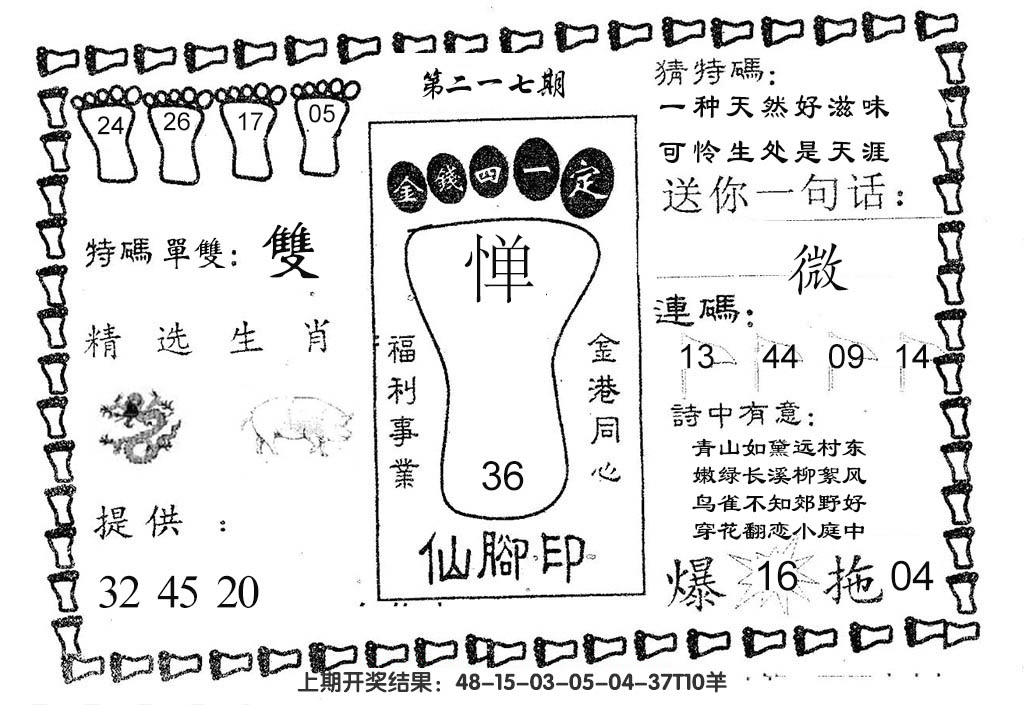 第二一七期
24 26 17 05
特碼單雙：雙
精选生肖
提供：
32 45 20
金錢四一定
惮
福利事業
金港同心
36
仙腳印
猜特碼：
一种天然好滋味
可怜生处是天涯
送你一句话：
微
連碼：
13 44 09 14
詩中有意：
青山如黛远村东
嫩绿长溪柳絮风
鸟雀不知郊野好
穿花翻恋小庭中
爆 16 拖 04
上期开奖结果：48-15-03-05-04-37T10羊